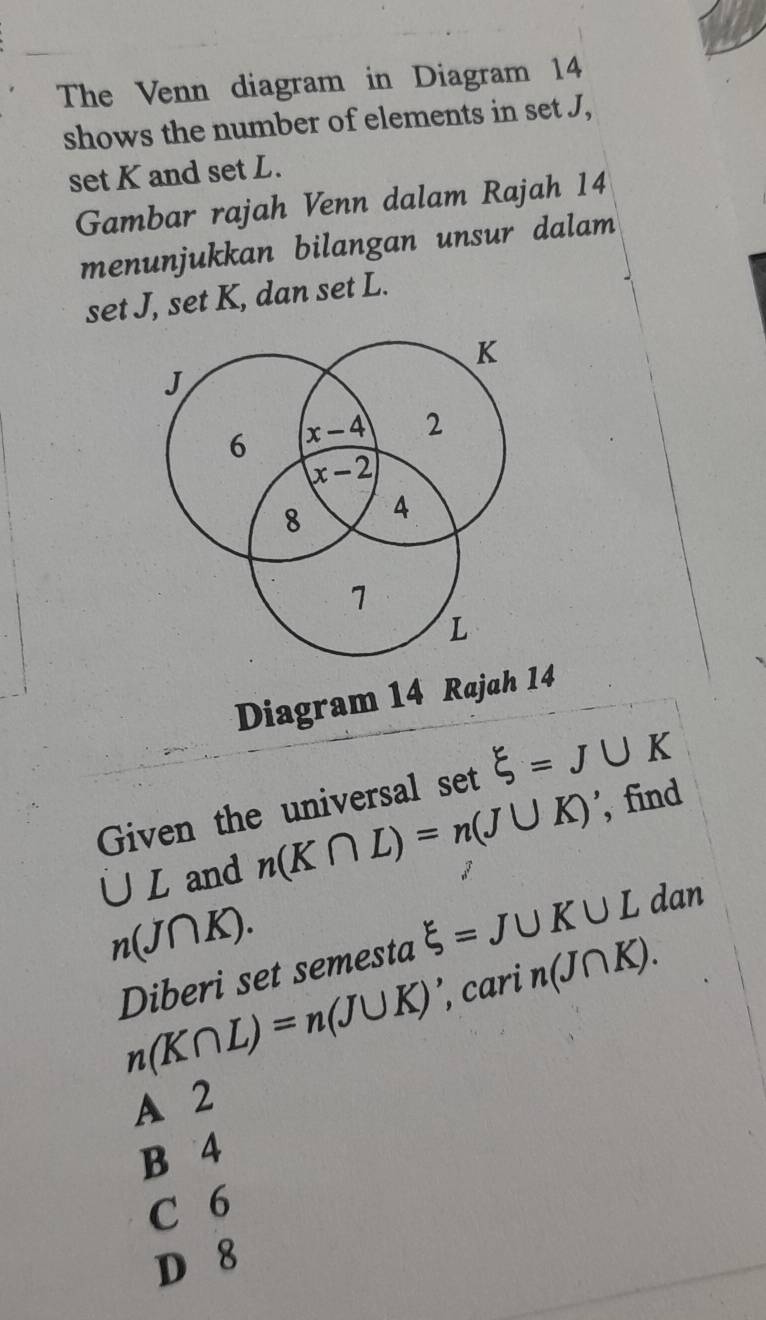 The Venn diagram in Diagram 14
shows the number of elements in set J,
set K and set L.
Gambar rajah Venn dalam Rajah 14
menunjukkan bilangan unsur dalam
set J, set K, dan set L.
J
K
6
x – 4
2
x – 2
8
4
7
L
Diagram 14 Rajah 14
Given the universal set ξ = J ∪ K
∪ L and n(K ∩ L) = n(J ∪ K)’, find
n(J∩K).
Diberi set semesta ξ = J∪K∪L dan
n(K∩L) = n(J∪K)’, cari n(J∩K).
A 2
B 4
C 6
D 8